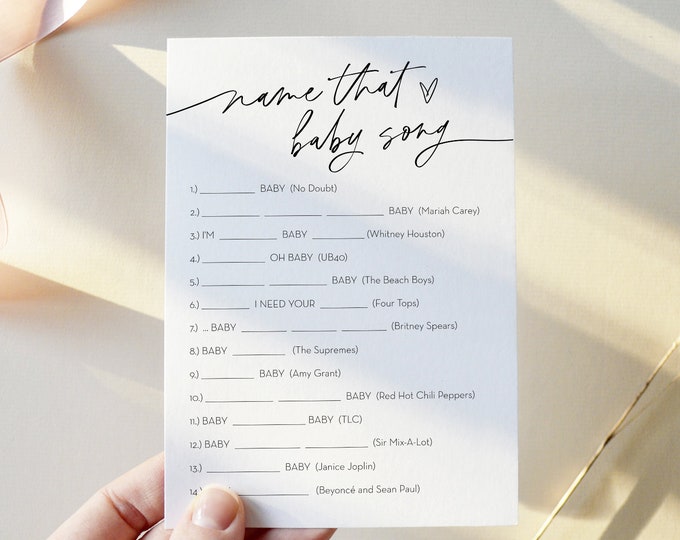 name that
baby song
1.) ________ BABY (No Doubt)
2.) ________ ________ ________ BABY (Mariah Carey)
3.) I'M ________ BABY ________ (Whitney Houston)
4.) ________ OH BABY (UB40)
5.) ________ ________ BABY (The Beach Boys)
6.) ________ I NEED YOUR ________ (Four Tops)
7.) ... BABY ________ ________ ________ (Britney Spears)
8.) BABY ________ (The Supremes)
9.) ________ BABY (Amy Grant)
10.) ________ ________ BABY (Red Hot Chili Peppers)
11.) BABY ________ BABY (TLC)
12.) BABY ________ ________ (Sir Mix-A-Lot)
13.) ________ BABY (Janice Joplin)
14 ________ (Beyoncé and Sean Paul)